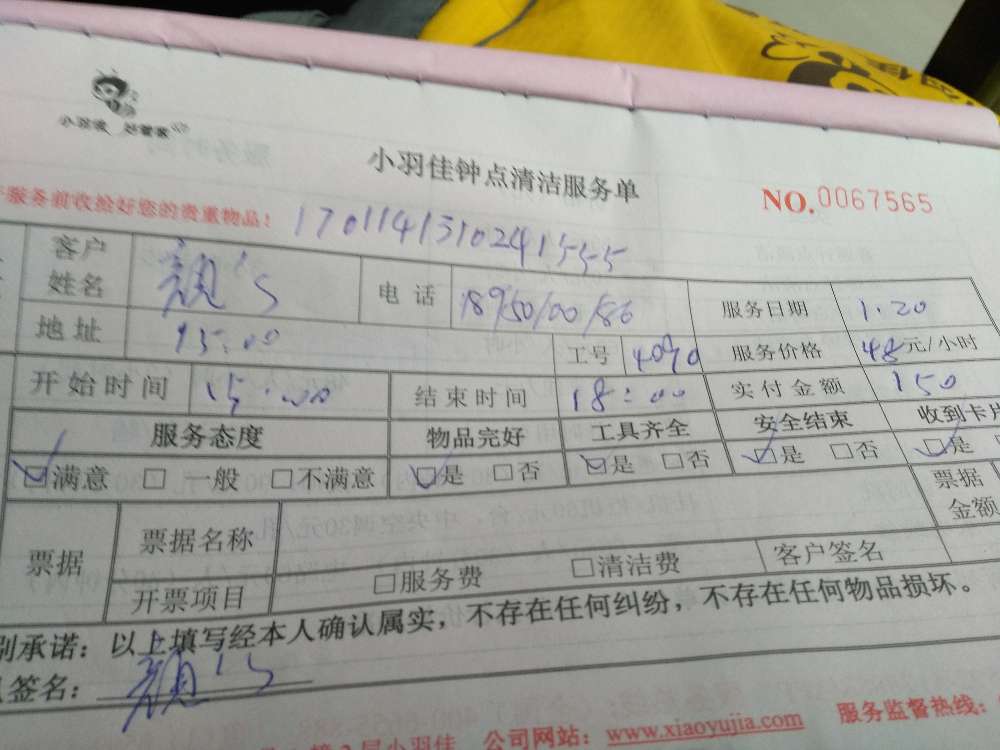 小羽佳 好管家
小羽佳钟点清洁服务单
NO.0067565
服务前收拾好您的贵重物品! 17011413102415555
客户姓名 电话 服务日期 1.20
地址 15:00 工号 4090 服务价格 48元/小时
开始时间 15:00 结束时间 18:00 实付金额 150
服务态度 物品完好 工具齐全 安全结束 收到卡片
满意 一般 不满意 是 否 是 否 是 否 是
票据 票据名称 票据金额
开票项目 服务费 清洁费 客户签名
别承诺：以上填写经本人确认属实，不存在任何纠纷，不存在任何物品损坏。
签名：
小羽佳 公司网站：www.xiaoyujia.com 服务监督热线：